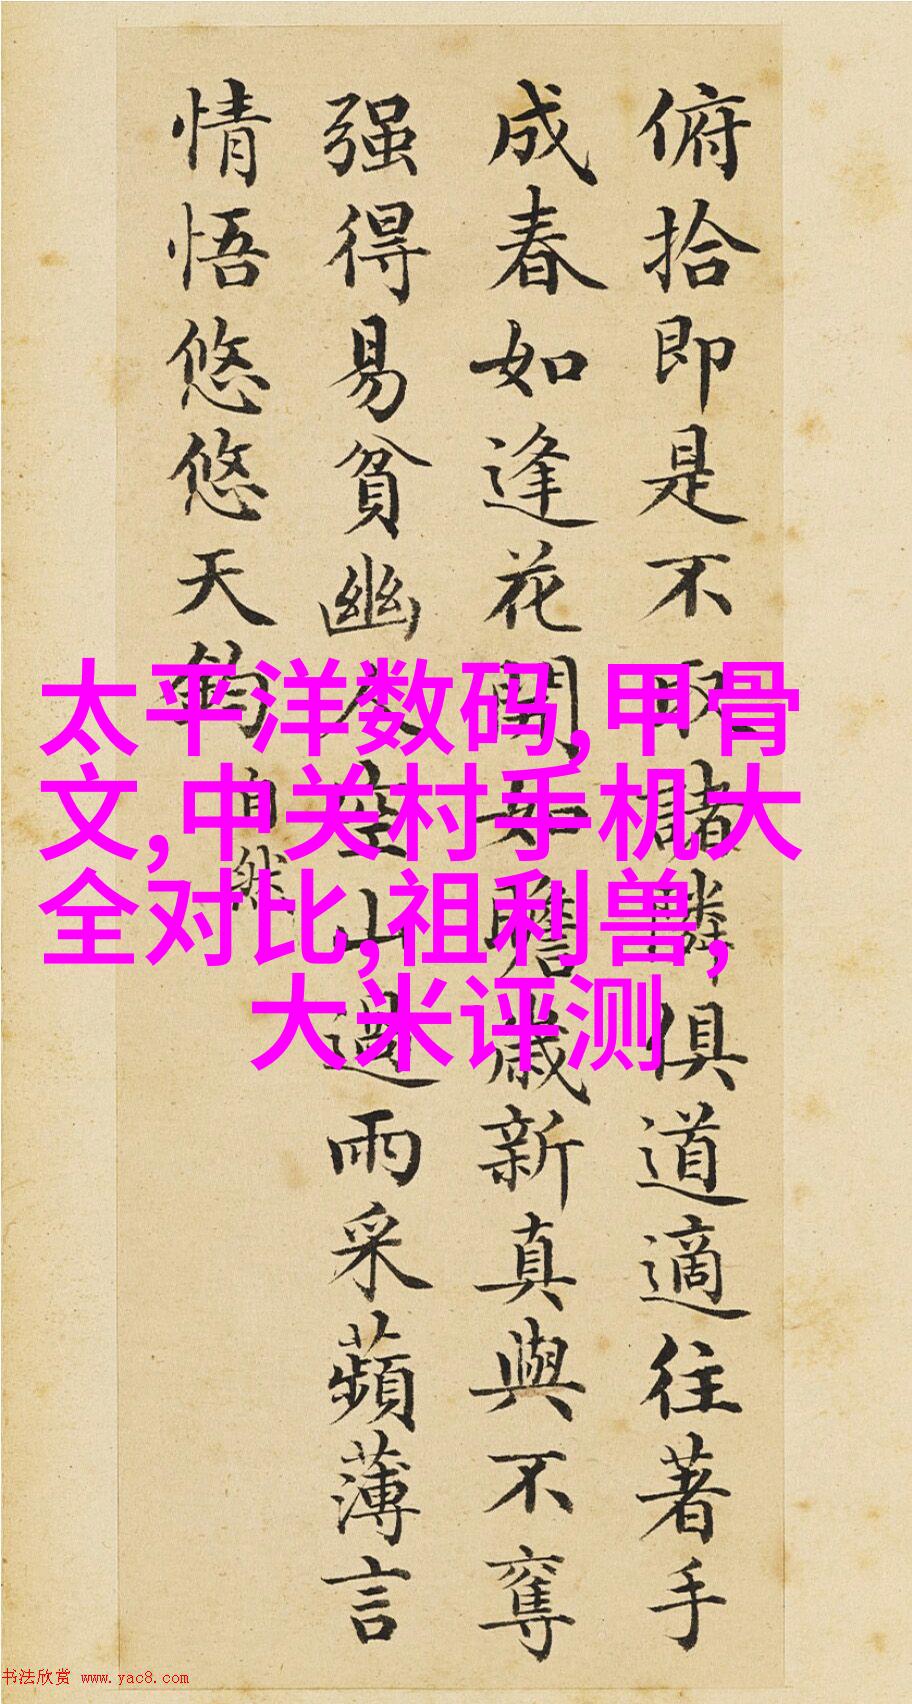 俯拾即是不取諸隣俱道適往著手
成春如逢花開如瞻歲新真與不奪
强得易貧幽人空山過雨采蘋薄言
情悟悠悠天鈞
自然
太平洋数码,甲骨
文,中关村手机大
全对比,祖利兽,
大米评测
书法欣赏 www.yac8.com